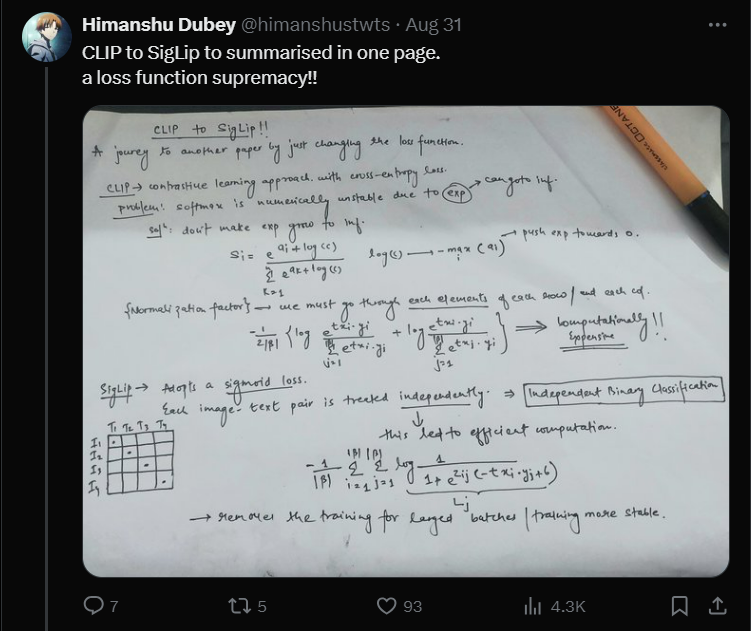 Himanshu Dubey @himanshustwts · Aug 31
CLIP to SigLip to summarised in one page.
a loss function supremacy!!
CLIP to SigLip!!
A jourey to another paper by just changing the loss function.
CLIP → contrastive learning approach with cross-entropy loss.
problem: softmax is numerically unstable due to exp → can goto inf.
solⁿ: don't make exp grow to inf.
Si = e^(ai + log(c)) / Σ_(k=1)^n e^(ak + log(c)) log(c) → -max_i (ai) → push exp towards 0.
{Normalization factor} → we must go through each elements of each row / and each col.
-1/2|β| { log e^(txi·yi) / Σ_(j=1)^|β| e^(txi·yj) + log e^(txi·yi) / Σ_(j=1)^|β| e^(txj·yi) } ⇒ Computationally Expensive !!
SigLip → Adopts a sigmoid loss.
Each image-text pair is treated independently. ⇒ Independent Binary Classification
T1 T2 T3 T4
I1
I2
I3
I4
this led to efficient computation.
-1/|β| Σ_(i=1)^|β| Σ_(j=1)^|β| log 1 / (1 + e^(zij(-txi·yj+b)))
Lj
→ removes the training for larged batches / training more stable.
7 5 93 4.3K